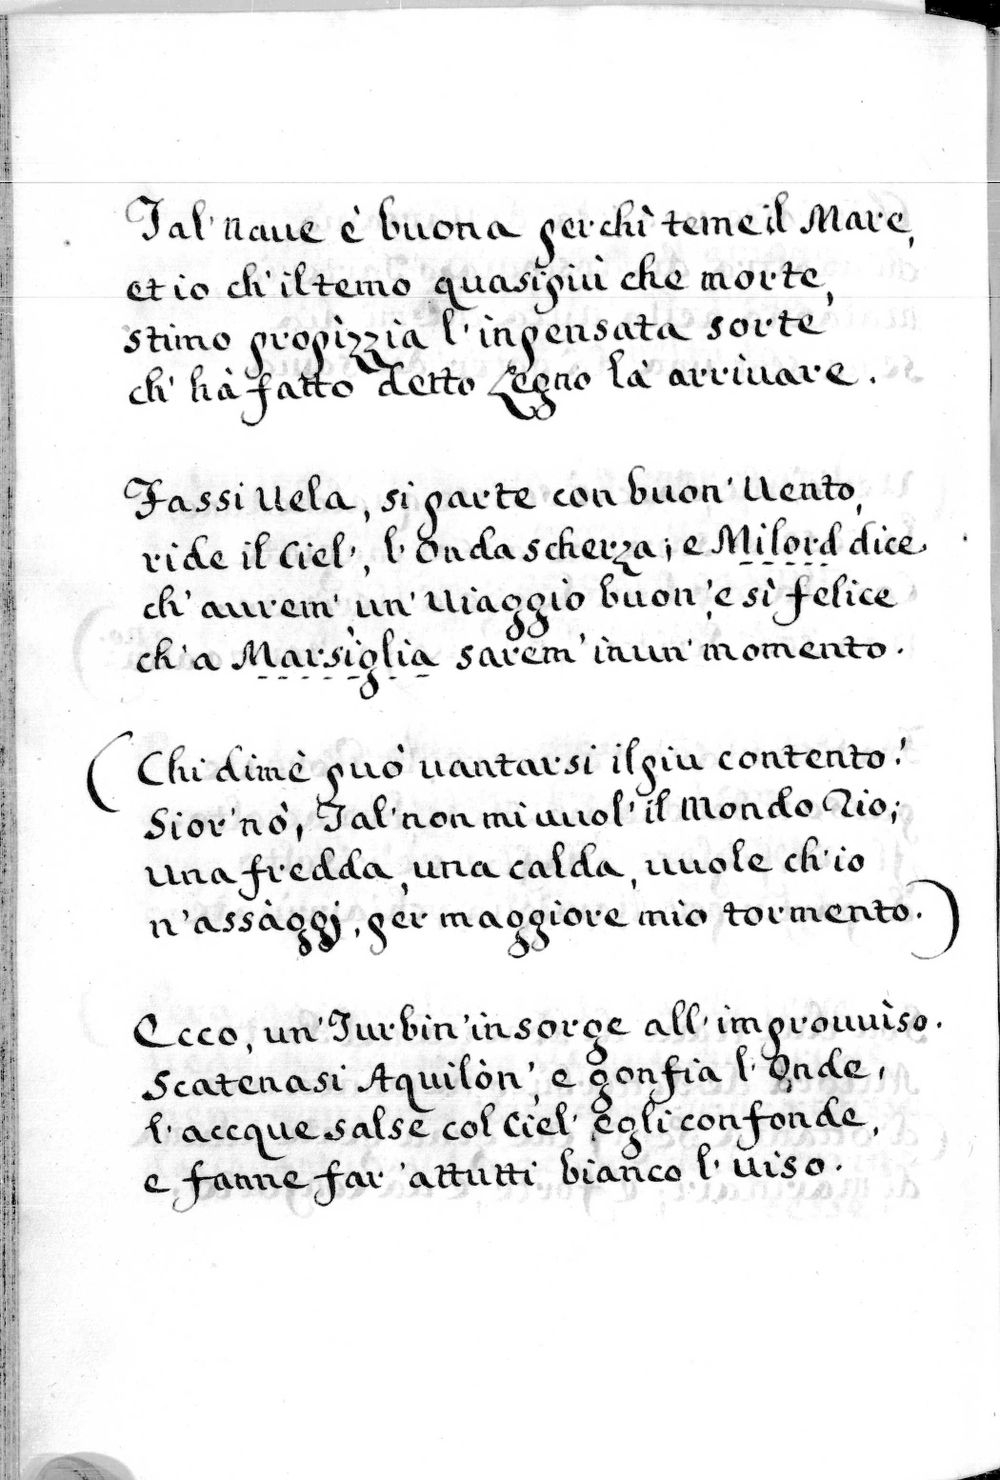 Tal' naue è buona per chì teme il Mare,
et io ch' il temo quasi più che morte,
stimo propizzia l' inpensata sorte
ch' hà fatto detto Legno là arriuare.
Fassi Uela, si parte con buon' Uento,
ride il Ciel', l' Onda scherza; e Milord dice
ch' aurem' un' Uiaggiò buon', e sì felice
ch' a Marsiglia sarem' in un' momento.
(Chi di mè può uantarsi il piu contento?
Sior' nò, Tal' non mi uuol' il Mondo Rio;
una fredda, una calda, uuole ch' io
n' assaggj, per maggiore mio tormento.)
Ecco, un' Turbin' insorge all' improuuiso.
Scatenasi Aquilòn', e gonfia l' Onde,
l' accque salse col Ciel' egli confonde,
e fanne far' attutti bianco l' uiso.